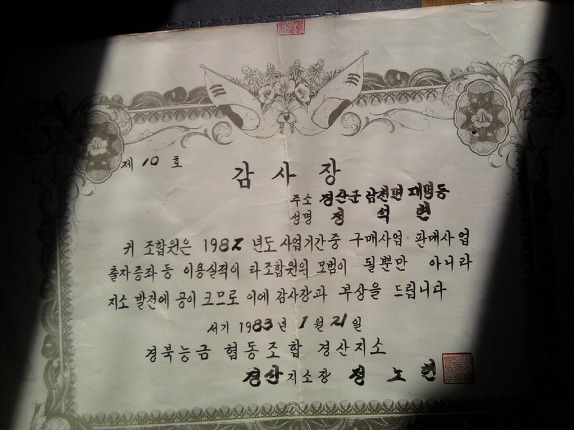 제 10 호
감사장
주소 경산군 남천면 재명동
성명 정 석 현
귀 조합원은 1982 년도 사업기간중 구매사업 판매사업
출자증좌 등 이용실적이 타조합원의 모범이 될뿐만 아니라
지소 발전에 공이 크므로 이에 감사장과 부상을 드립니다
서기 1983 년 1 월 21 일
경북능금 협동조합 경산지소
경산지소장 정 노 현